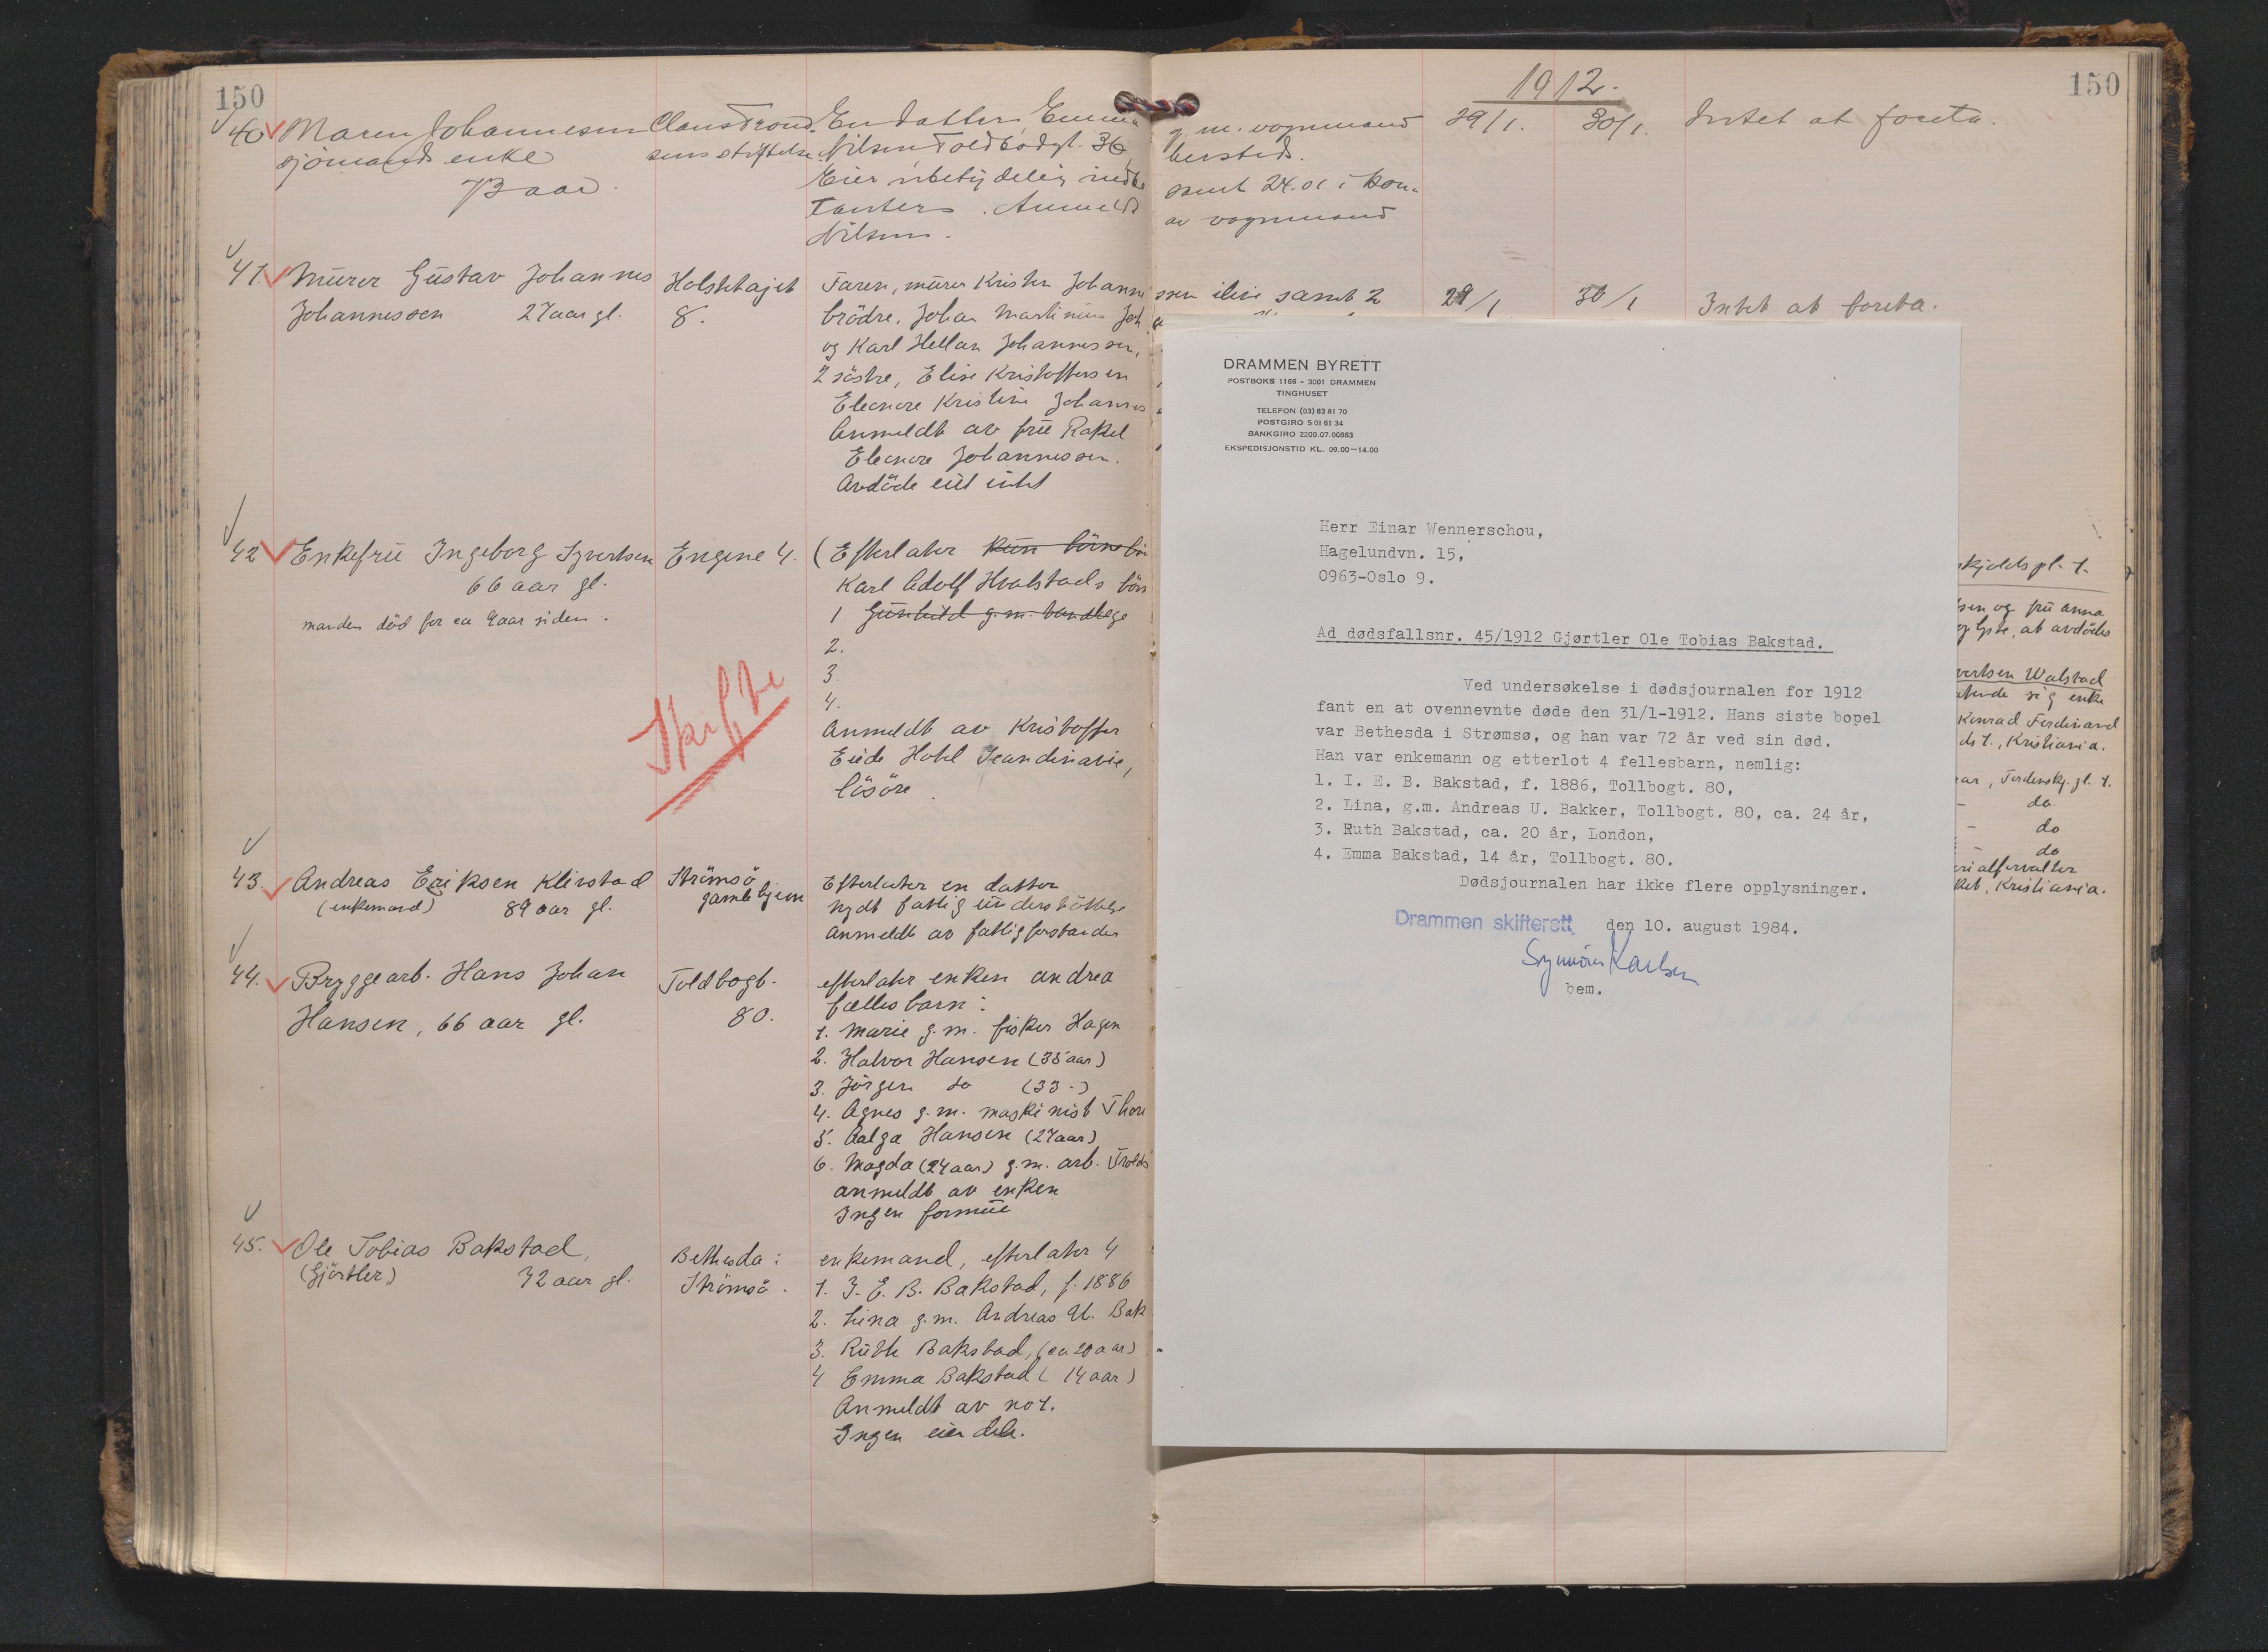 150
1912.
150
40 Maren Johannesen Claus Trond. En datter, Emma g. m. vognmand 29/1. 30/1. Intet at foreta.
sjömands enke sens stiftelse Nilsen, Toldbodgt. 36,
73 aar. Eier ubetydelig indbo samt 24.01 i kon-
tanter. Anmeldt av vognmand
Nilsen.
41. Murer Gustav Johannes Holstehajet Faren, murer Kristen Johanne ssen ilive samt 2 29/1 30/1 Intet at foreta.
Johannessen 27 aar gl. 8. brödre, Johan Martinius Joh
og Karl Hellan Johannessen,
2 söstre, Elise Kristoffersen
Eleonore Kristine Johannes
Anmeldt av frü Rakel
Eleonore Johannessen.
Avdöde eiet intet
42 Enkefrü Ingeborg Syvertsen Engene 4. (Efterlater kun börnebö
66 aar gl. Karl Adolf Hvalstads börn
manden död for ca 9 aar siden. 1 Gunhild g.m.
2.
3.
4.
Skifte
Anmeldt av Kristoffer
Eide Hotel Scandinavie,
lösöre.
43. Andreas Eriksen Klivstad Strömsö Efterlater en datter
(enkemand) 89 aar gl. gamlehjem nydt fattigunderstöttelse
anmeldt av fattigforstander
44. Bryggearb. Hans Johan Toldbogt. efterlater enken Andrea
Hansen, 66 aar gl. 80. fællesbarn:
1. Marie g.m. fisker Hagen
2. Halvor Hansen (35 aar)
3. Jörgen do (33 -)
4. Agnes g.m. maskinist Thor
5. Aalga Hansen (27 aar)
6. Magda (24 aar) g.m. arb. Trolds
anmeldt av enken
Ingen formüe
45. Ole Tobias Bakstad, Bethesda i enkemand, efterlater 4
(Gjörtler) 72 aar gl. Strömsö. 1. I. E. B. Bakstad, f. 1886
2. Lina g.m. Andreas U. Bak
3. Ruth Bakstad, (ca 20 aar)
4 Emma Bakstad (14 aar)
Anmeldt av no 1.
Ingen eiendele.
DRAMMEN BYRETT
POSTBOKS 1166 - 3001 DRAMMEN
TINGHUSET
TELEFON (03) 83 81 70
POSTGIRO 5 01 61 34
BANKGIRO 2200.07.00863
EKSPEDISJONSTID KL. 09.00—14.00
Herr Einar Wennerschou,
Hagelundvn. 15,
0963-Oslo 9.
Ad dødsfallsnr. 45/1912 Gjørtler Ole Tobias Bakstad.
Ved undersøkelse i dødsjournalen for 1912
fant en at ovennevnte døde den 31/1-1912. Hans siste bopel
var Bethesda i Strømsø, og han var 72 år ved sin død.
Han var enkemann og etterlot 4 fellesbarn, nemlig:
1. I. E. B. Bakstad, f. 1886, Tollbogt. 80,
2. Lina, g.m. Andreas U. Bakker, Tollbogt. 80, ca. 24 år,
3. Ruth Bakstad, ca. 20 år, London,
4. Emma Bakstad, 14 år, Tollbogt. 80.
Dødsjournalen har ikke flere opplysninger.
Drammen skifterett den 10. august 1984.
Karlsen
bem.
skjoldspl. 1.
sen og frü Anna
oplyste, at avdödes
vertsen Walstad
sig enke
Konrad Ferdinand
ds 1., Kristiania.
aar, Tordenskj. pl. 1.
- do
- do
- do
erialforvalter
ket, Kristiania.